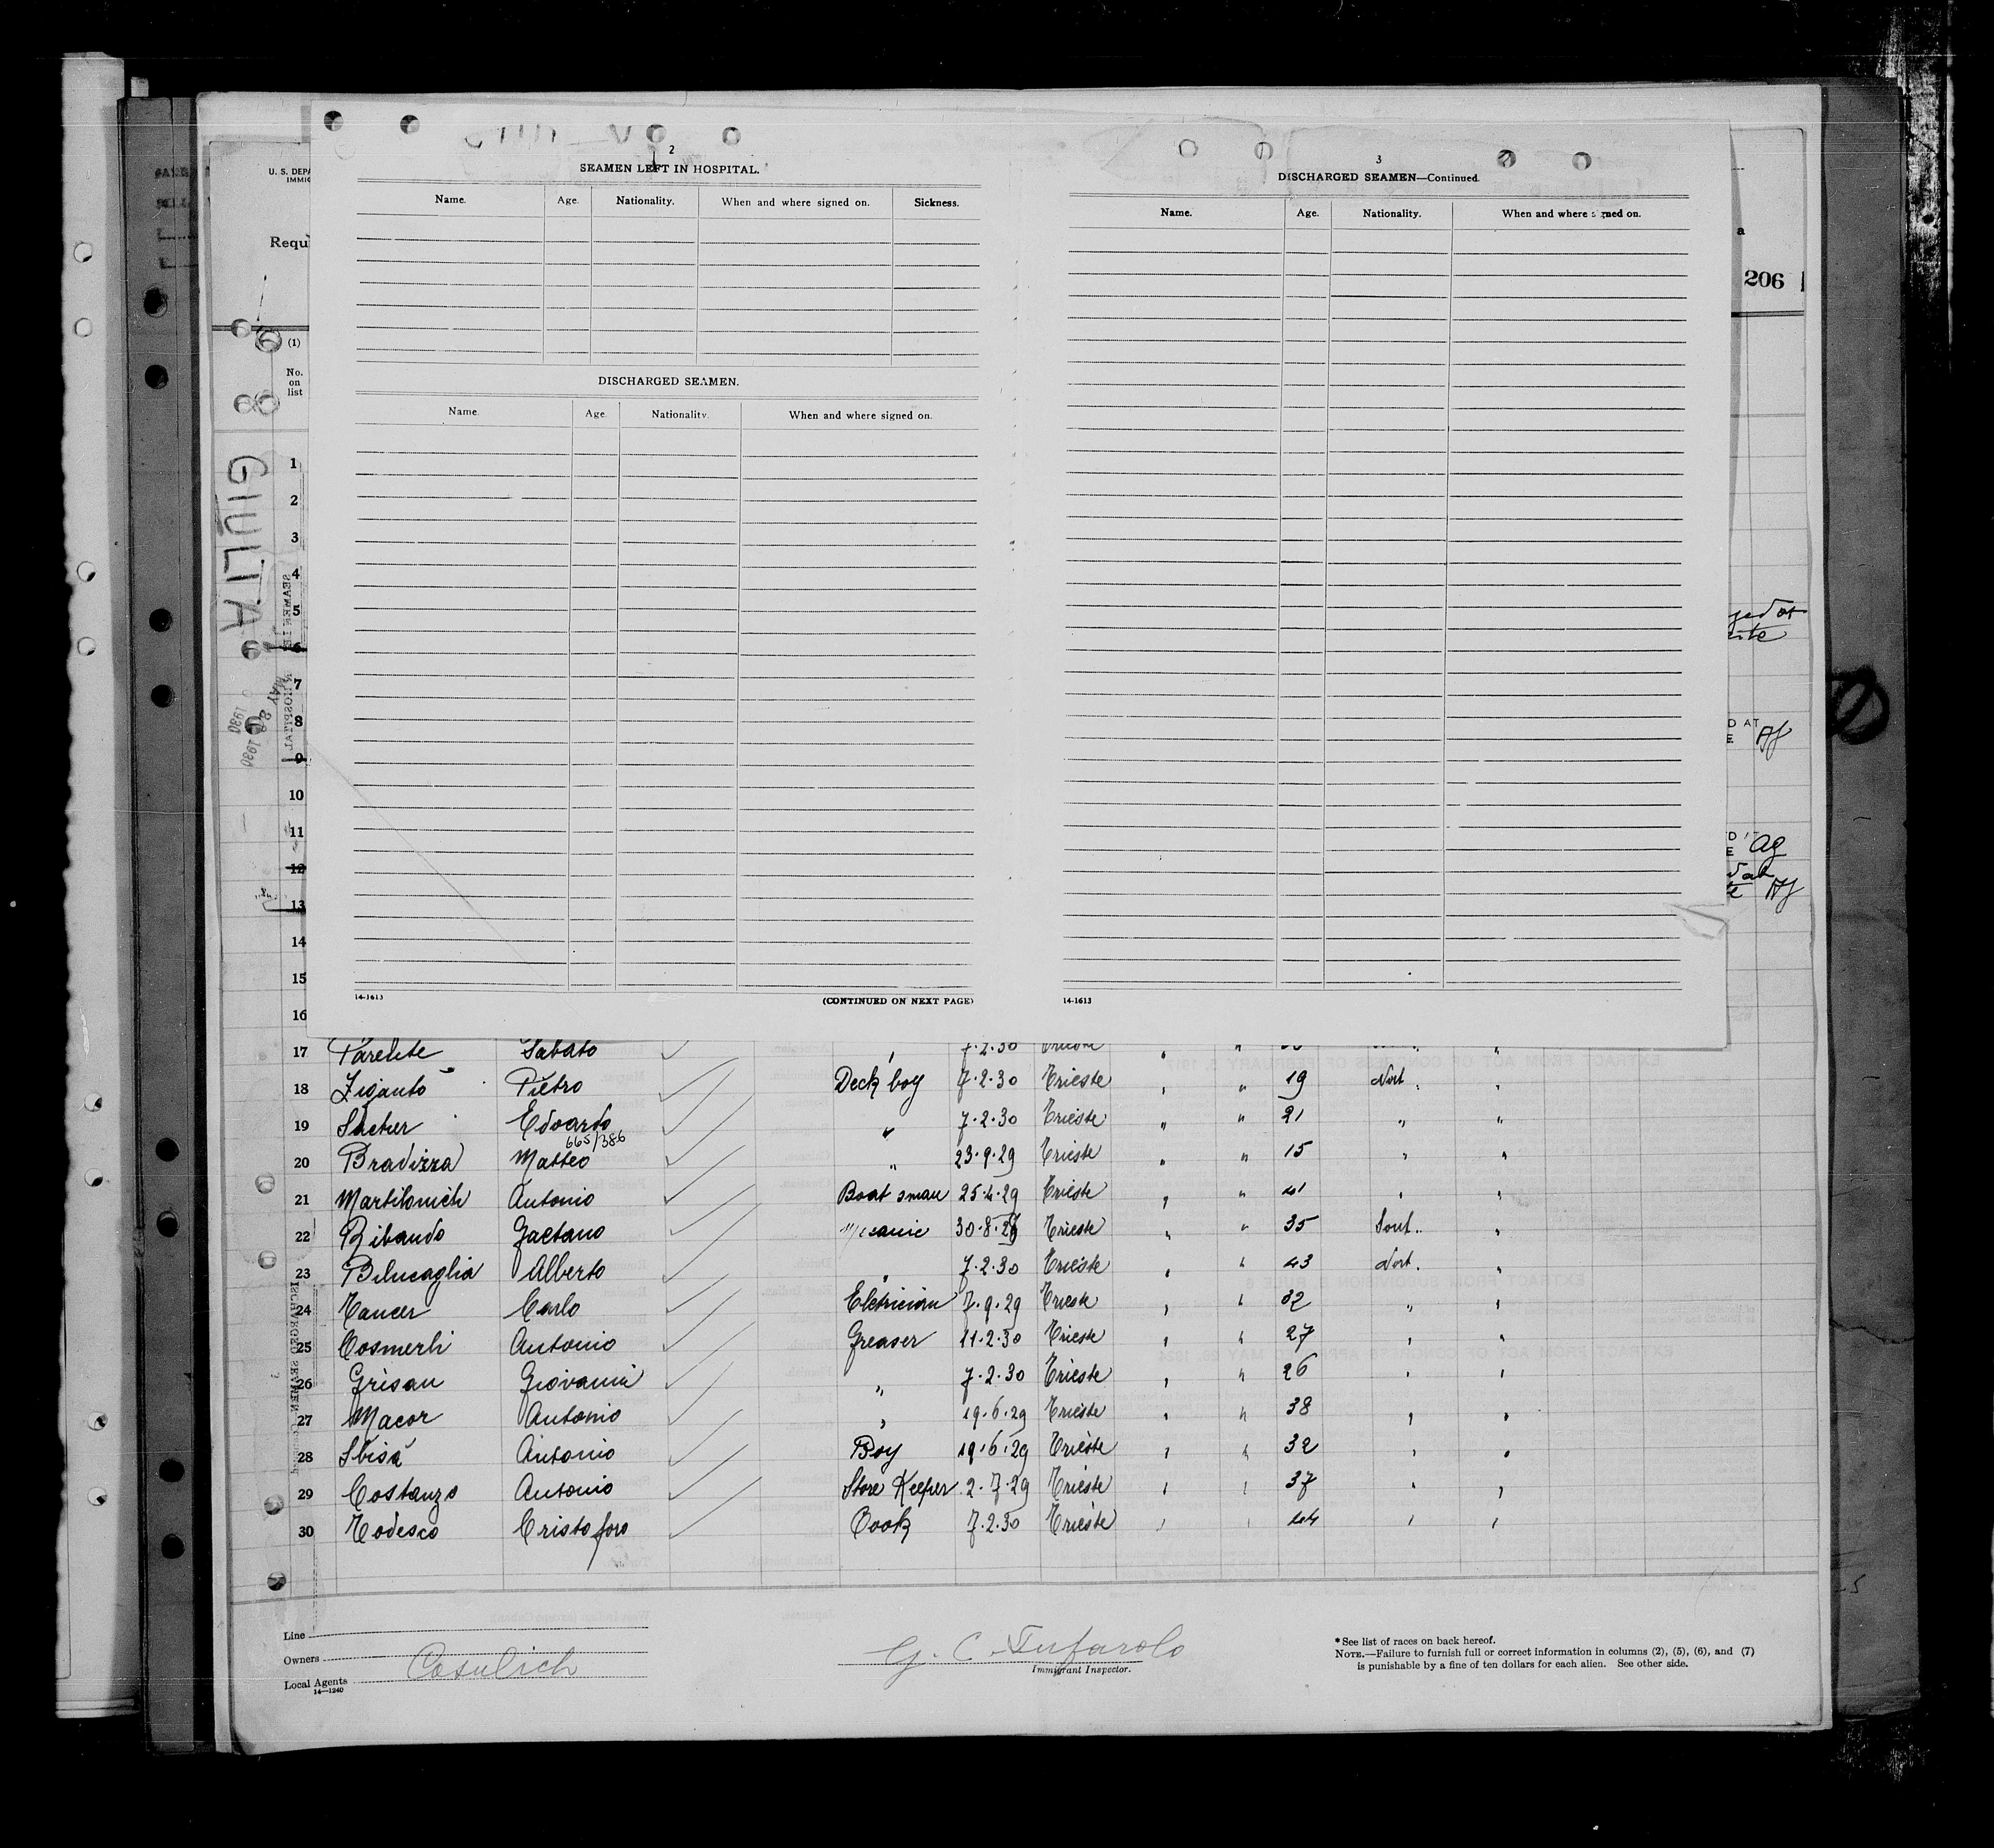 2
SEAMEN LEFT IN HOSPITAL.
Name. Age. Nationality. When and where signed on. Sickness.
DISCHARGED SEAMEN.
Name. Age. Nationality. When and where signed on.
14-1613 (CONTINUED ON NEXT PAGE)
3
DISCHARGED SEAMEN—Continued.
Name. Age. Nationality. When and where signed on.
14-1613
206
(1)
No.
on
list
GIULIA
MAY 8 1930
1930
1
2
3
4
5
6
7
8
9
10
11
12
13
14
15
16
17 Parente Sabato 7.2.30 Trieste
18 Ziganto Pietro Deck boy 7.2.30 Trieste " " 19 Nort. "
19 Edoardo " 7.2.30 Trieste " " 21 " "
665/386
20 Bradizza Matteo " 23.9.29 Trieste " " 15 " "
21 Martinonich Antonio Boat sman 25.4.29 Trieste " " 41 " "
22 Ribaudo Gaetano 30.8.29 Trieste " " 35 Sout. "
23 Bilucaglia Alberto " 7.2.30 Trieste " " 43 Nort. "
24 Tancer Carlo Eletrician 7.9.29 Trieste " " 32 " "
25 Cosmerli Antonio Greaser 11.2.30 Trieste " " 27 " "
26 Grisan Giovanni " 7.2.30 Trieste " " 26 " "
27 Macor Antonio " 19.6.29 Trieste " " 38 " "
28 Sbisá Antonio Boy 19.6.29 Trieste " " 32 " "
29 Costanzo Antonio Store Keeper 2.7.29 Trieste " " 37 " "
30 Todesco Cristoforo Cook 7.2.30 Trieste " " 44 " "
Line
Owners
Cosulich
Local Agents
14—1240
G. C. Tufarolo
Immigrant Inspector.
* See list of races on back hereof.
NOTE.—Failure to furnish full or correct information in columns (2), (5), (6), and (7)
is punishable by a fine of ten dollars for each alien. See other side.